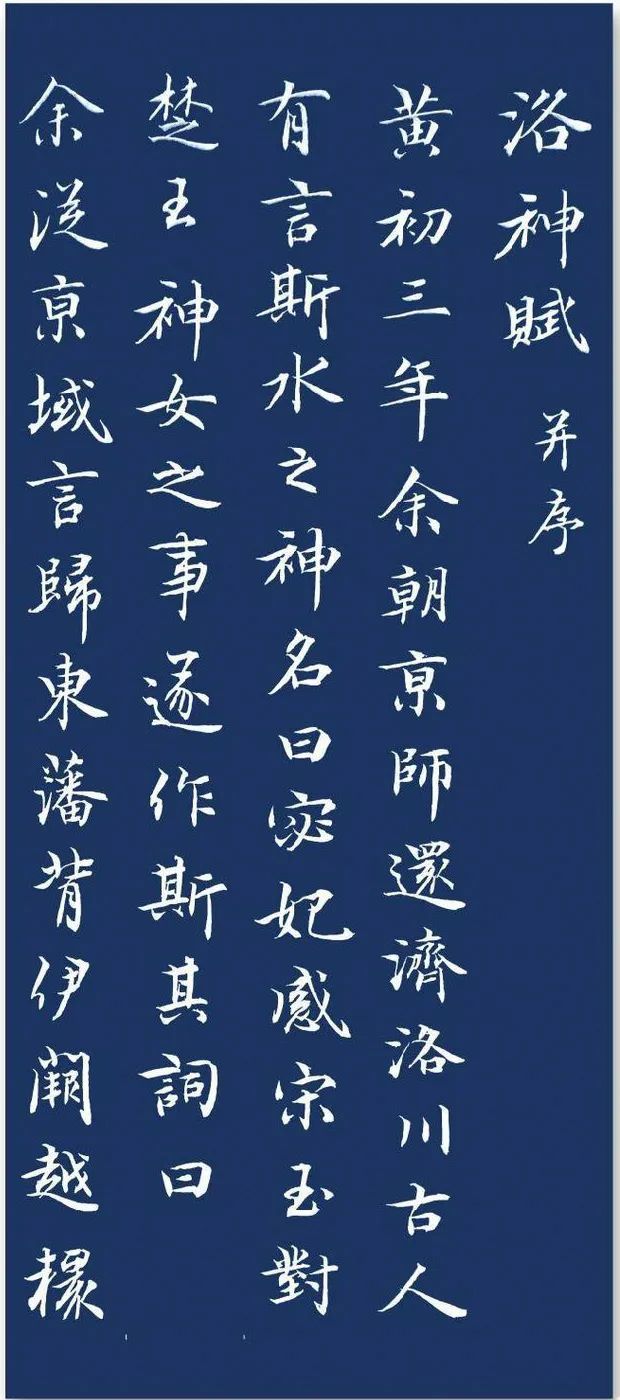 洛神賦 并序
黃初三年余朝京師還濟洛川古人
有言斯水之神名曰宓妃感宋玉對
楚王神女之事遂作斯其詞曰
余從京域言歸東藩背伊闕越轘